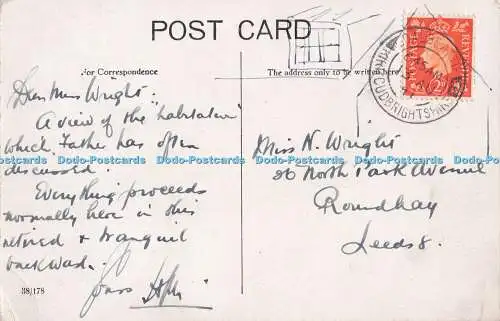 POST CARD
For Correspondence
The address only to be written here
POSTAGE REVENUE
KIRKCUDBRIGHTSHIRE
Dear Miss Wright.
A view of the "habitation"
which Father has often
discussed.
Everything proceeds
normally here in this
retired & tranquil
backwash.
Yours
Miss N. Wright
26 North Park Avenue
Roundhay
Leeds 8.
38/178
Dodo-Postcards Dodo-Postcards Dodo-Postcards Dodo-Postcards Dodo-Postcards